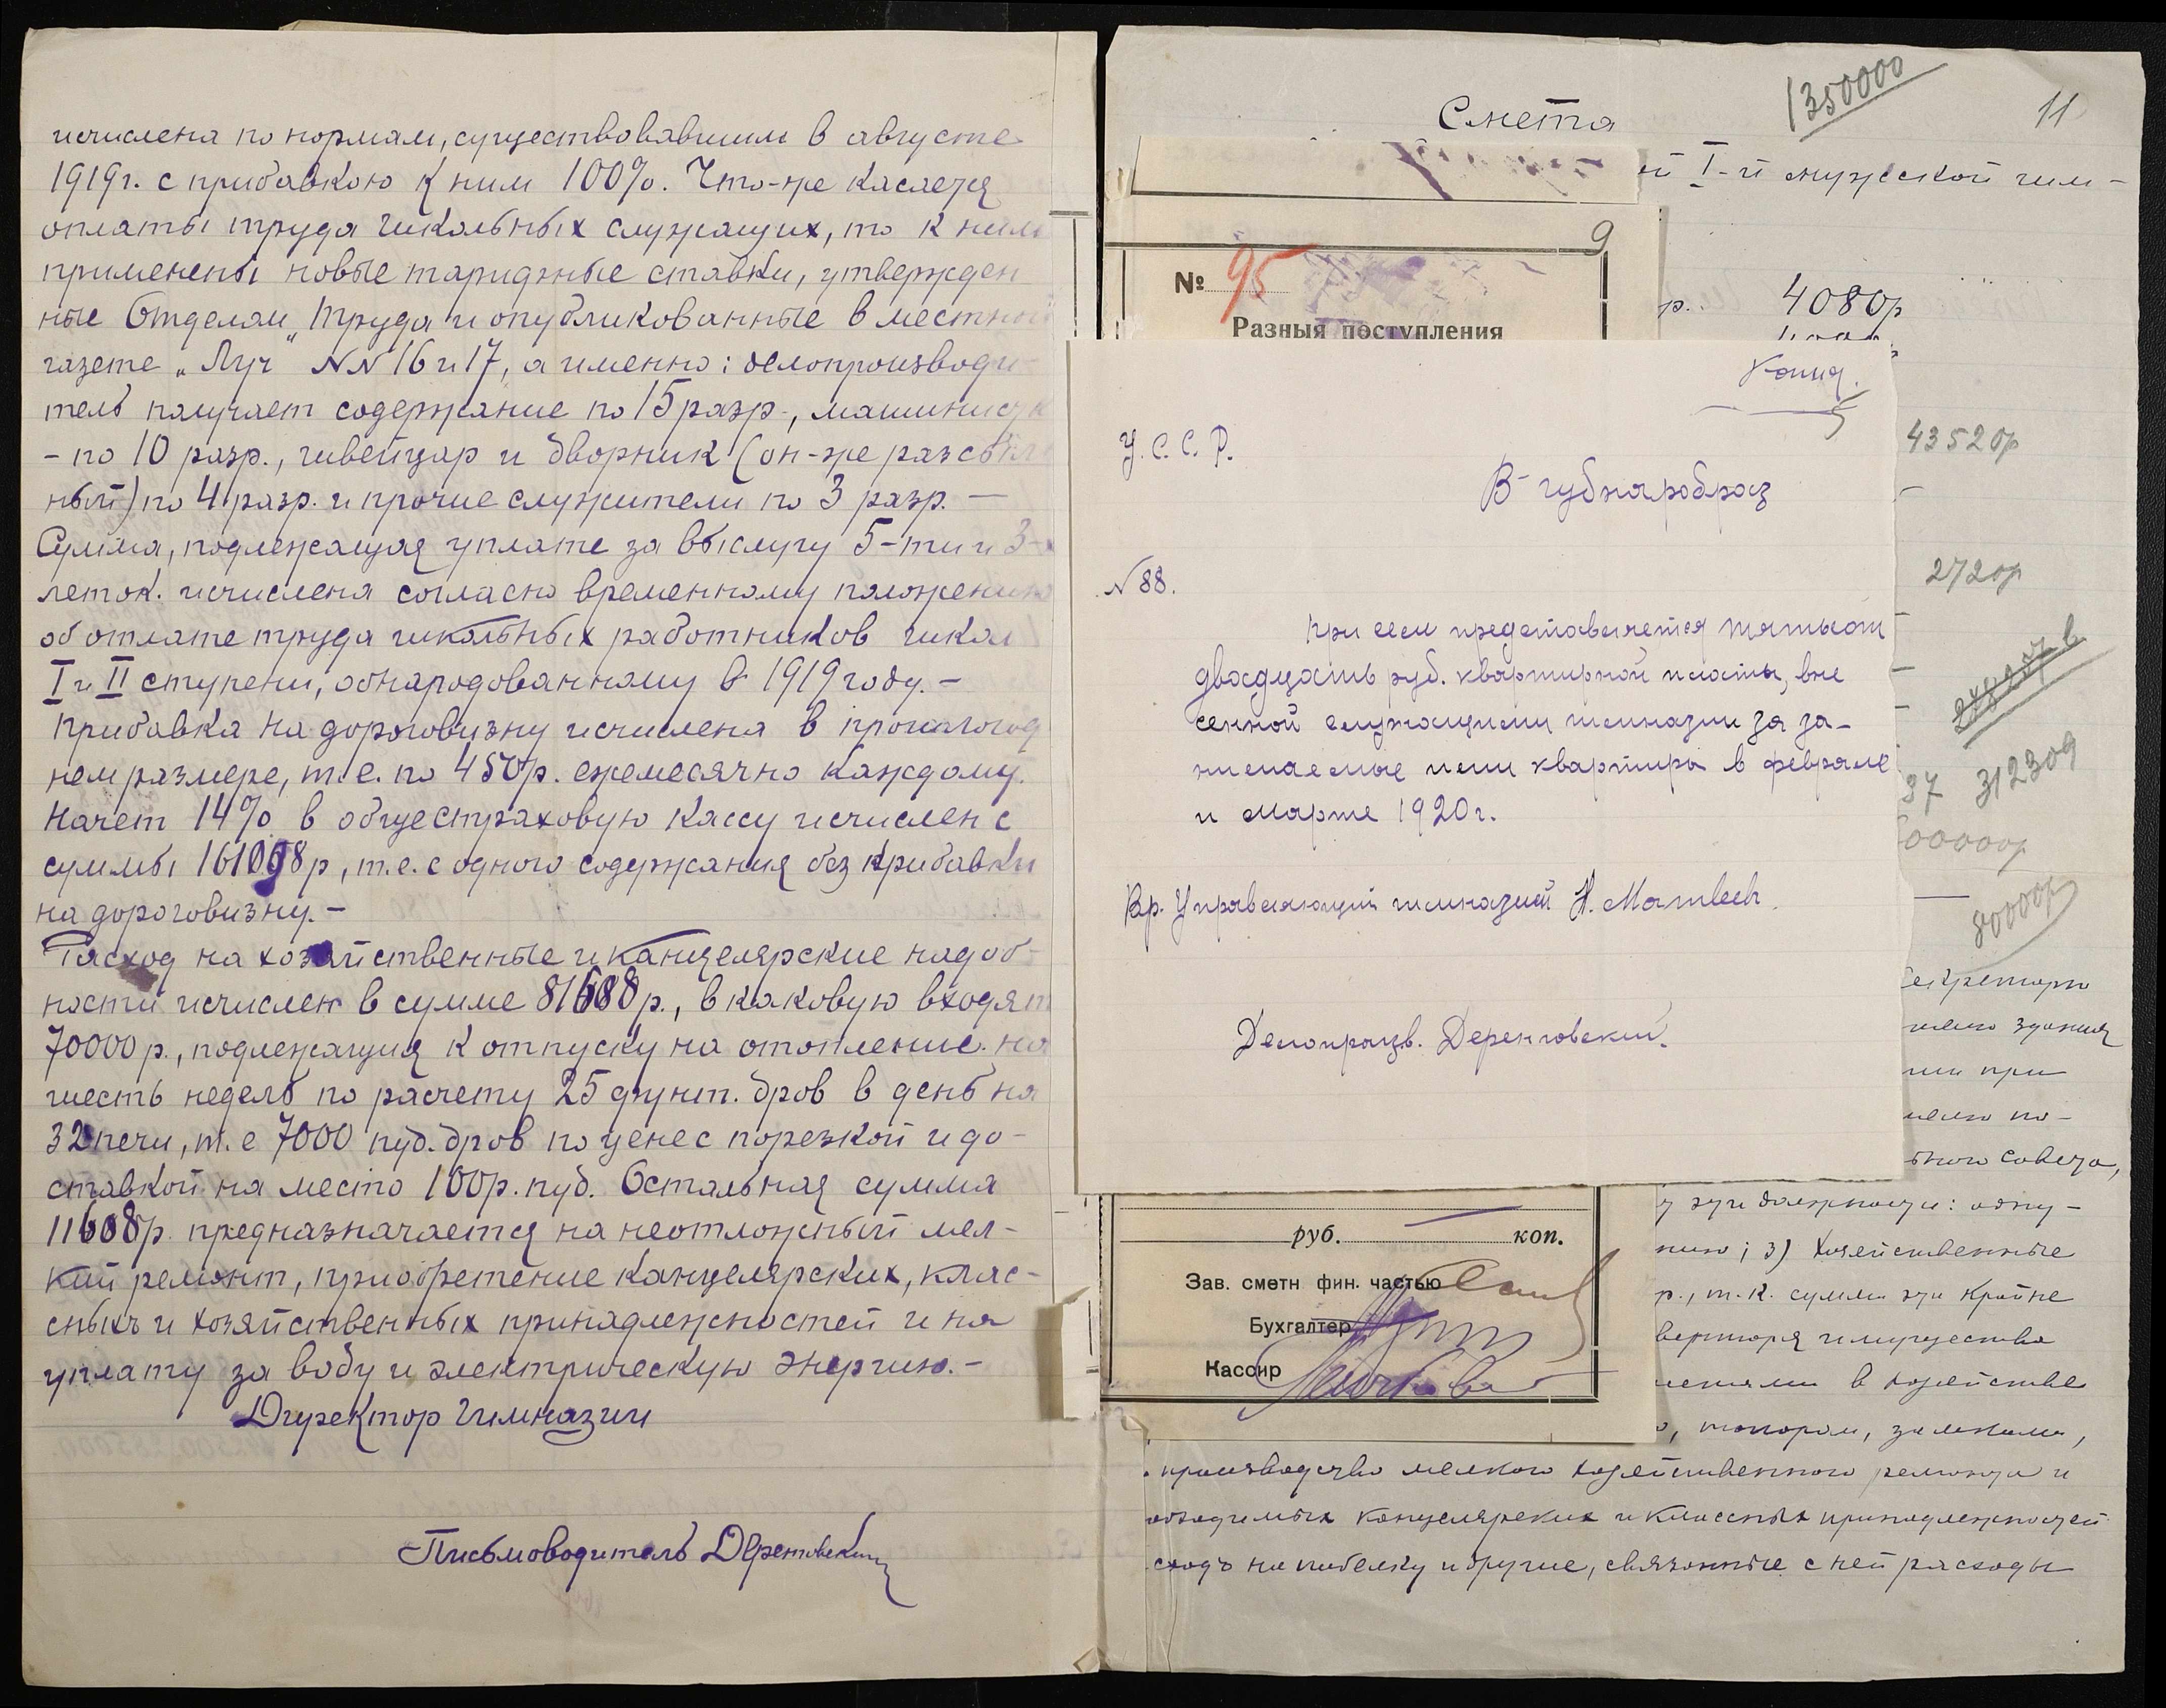 исчислена по нормам, существовавшим в августе
1919г. с прибавкою к ним 100%. Что-же касается
оплаты труда школьных служащих, то к ним
применены новые тарифные ставки, утвержден
ные Отделом „Труда и опубликованные в местной
газете „Луч" NN 16 и 17, а именно: делопроизводи-
тель получает содержание по 15 разр., машинистк
- по 10 разр., швейцар и дворник (он-же разсыль
ный) по 4 разр. и прочие служители по 3 разр. —
Сумма, подлежащая уплате за выслугу 5-ти и 3-х
леток. исчислена согласно временному положению
об оплате труда школьных работников школ
I и II ступени, обнародованному в 1919 году. -
Прибавка на дороговизну исчислена в прошлогод
нем размере, т.е. по 450р. ежемесячно каждому.
Начет 14% в общестраховую кассу исчислен с
суммы 161098р, т.е. с одного содержания без прибавки
на дороговизну. -
Расход на хозяйственные и канцелярские надоб-
ности исчислен в сумме 81608р., в каковую входят
70000р., подлежащия к отпуску на отопление на
шесть недель по расчету 25 фунт. дров в день на
32 печи, т.е 7000 пуд. дров по цене с порезкой и до-
ставкой на место 100р. пуд. Остальная сумма
11608р. предназначается на неотложный мел-
кий ремонт, приобретение канцелярских, клас-
сныхъ и хозяйственных принадлежностей и на
уплату за воду и электрическую энергию. -
Директор Гимназии
Письмоводитель
1350000
11
Смета
й I-й мужской гим-
9
№ 95
Разныя поступления
р. 4080р
Копия.
У. С. С. Р.
В губнаробраз
N 88.
При сем представляется пятьсот
двадцать руб. квартирной платы, вне
сенной служащими гимназии за за-
нимаемые ими квартиры в феврале
и марте 1920 г.
Вр. Управляющий гимназией Н. Матвеев.
Делопроизв. Деренговский.
43520р
2720р
37 312309
00000р
80000р
Секретарю
здания
при
по-
ного Совета,
эти должности: одну-
нию; 3) Хозяйственные
р., т.к. сумма эта крайне
вентаря имущества
в хозяйстве
, топорам, замками,
производство мелкого хозяйственного ремонта и
обходимых канцелярских и классных принадлежностей
сходъ на побелку и другие, связанные с ней расходы
руб. коп.
Зав. сметн фин. частью
Бухгалтер
Кассир